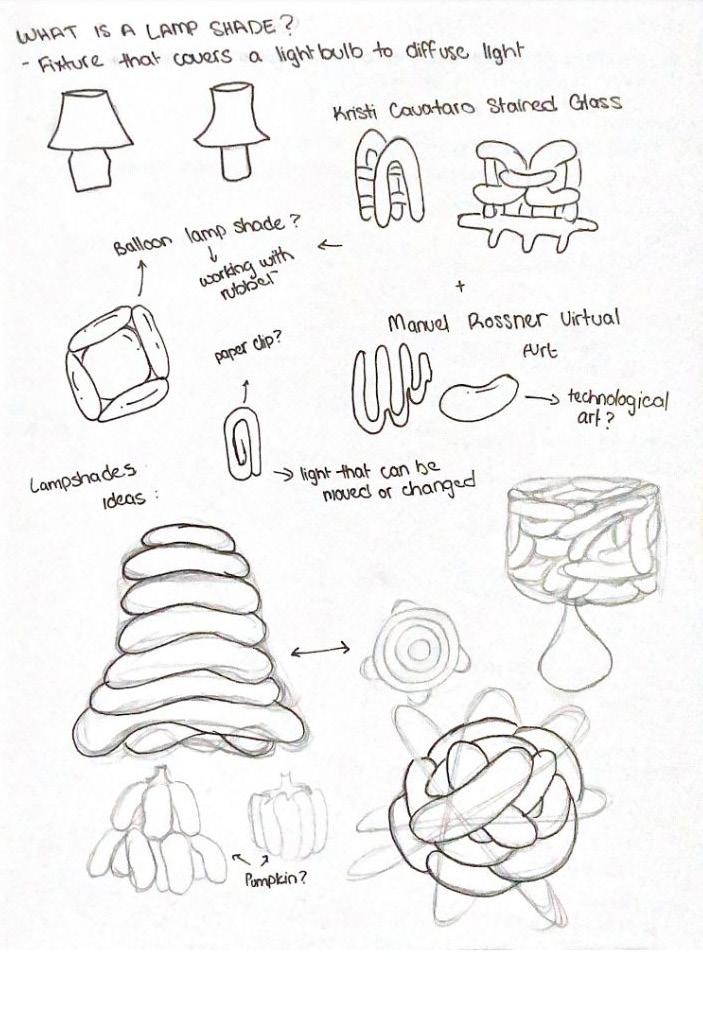 WHAT IS A LAMP SHADE?
- Fixture that covers a lightbulb to diffuse light
Kristi Cavataro Stained Glass
Balloon lamp shade?
working with
rubber
+
Manuel Rossner Virtual
Art
paper clip?
technological
art?
light that can be
moved or changed
Lampshades
Ideas:
Pumpkin?